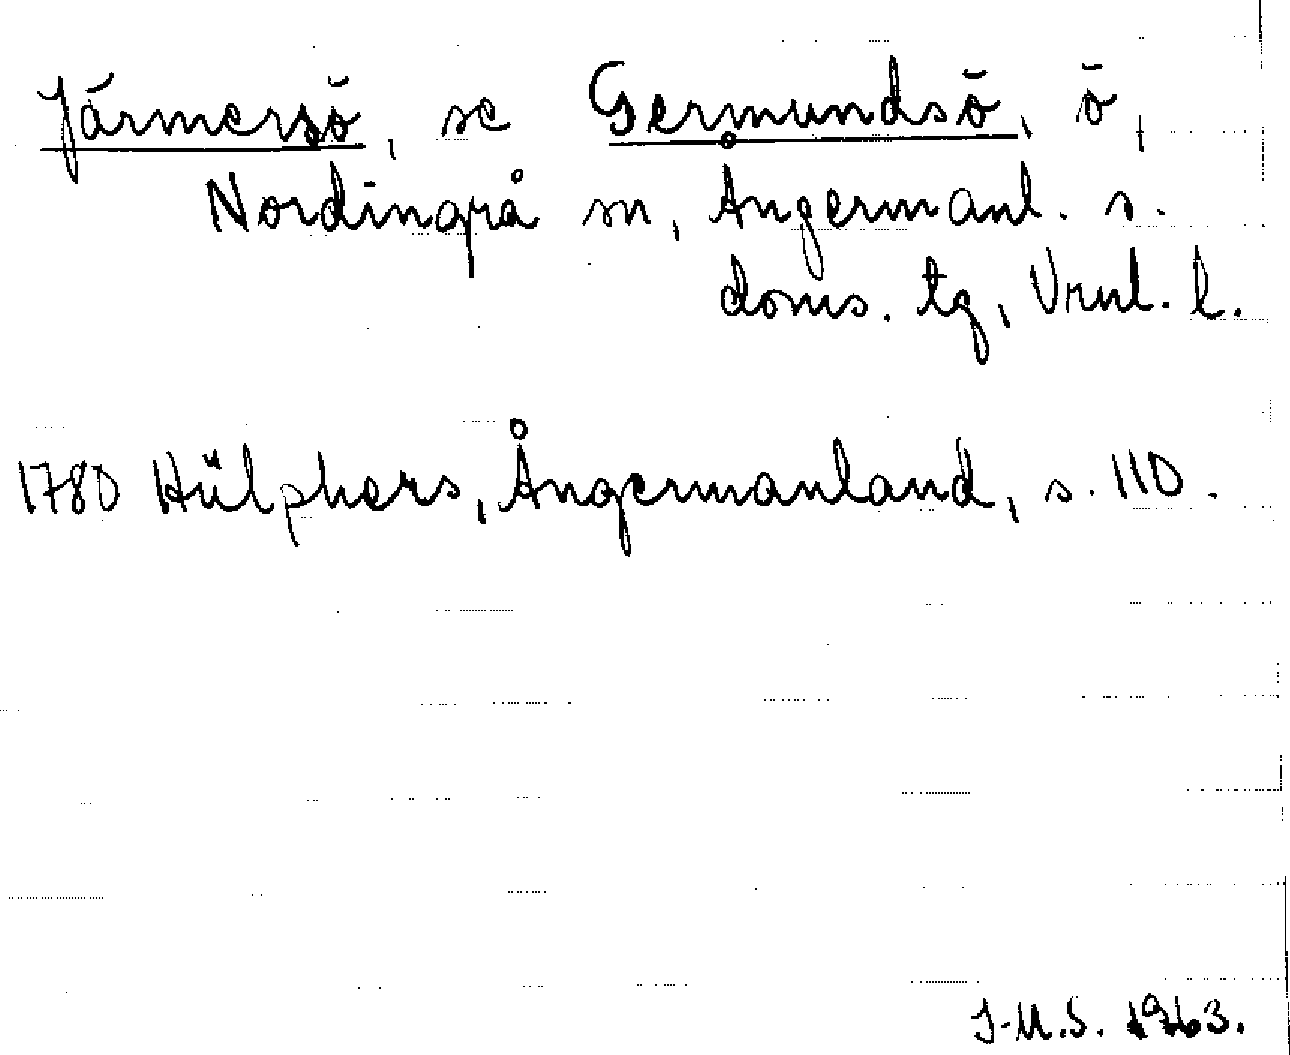 Järmersö, se Germundsö, ö,
Nordingrå sn, Ångermanl. s.
doms. tg, Vrnl. l.
1780 Hülphers, Ångermanland, s. 110.
I-M.S. 1963.